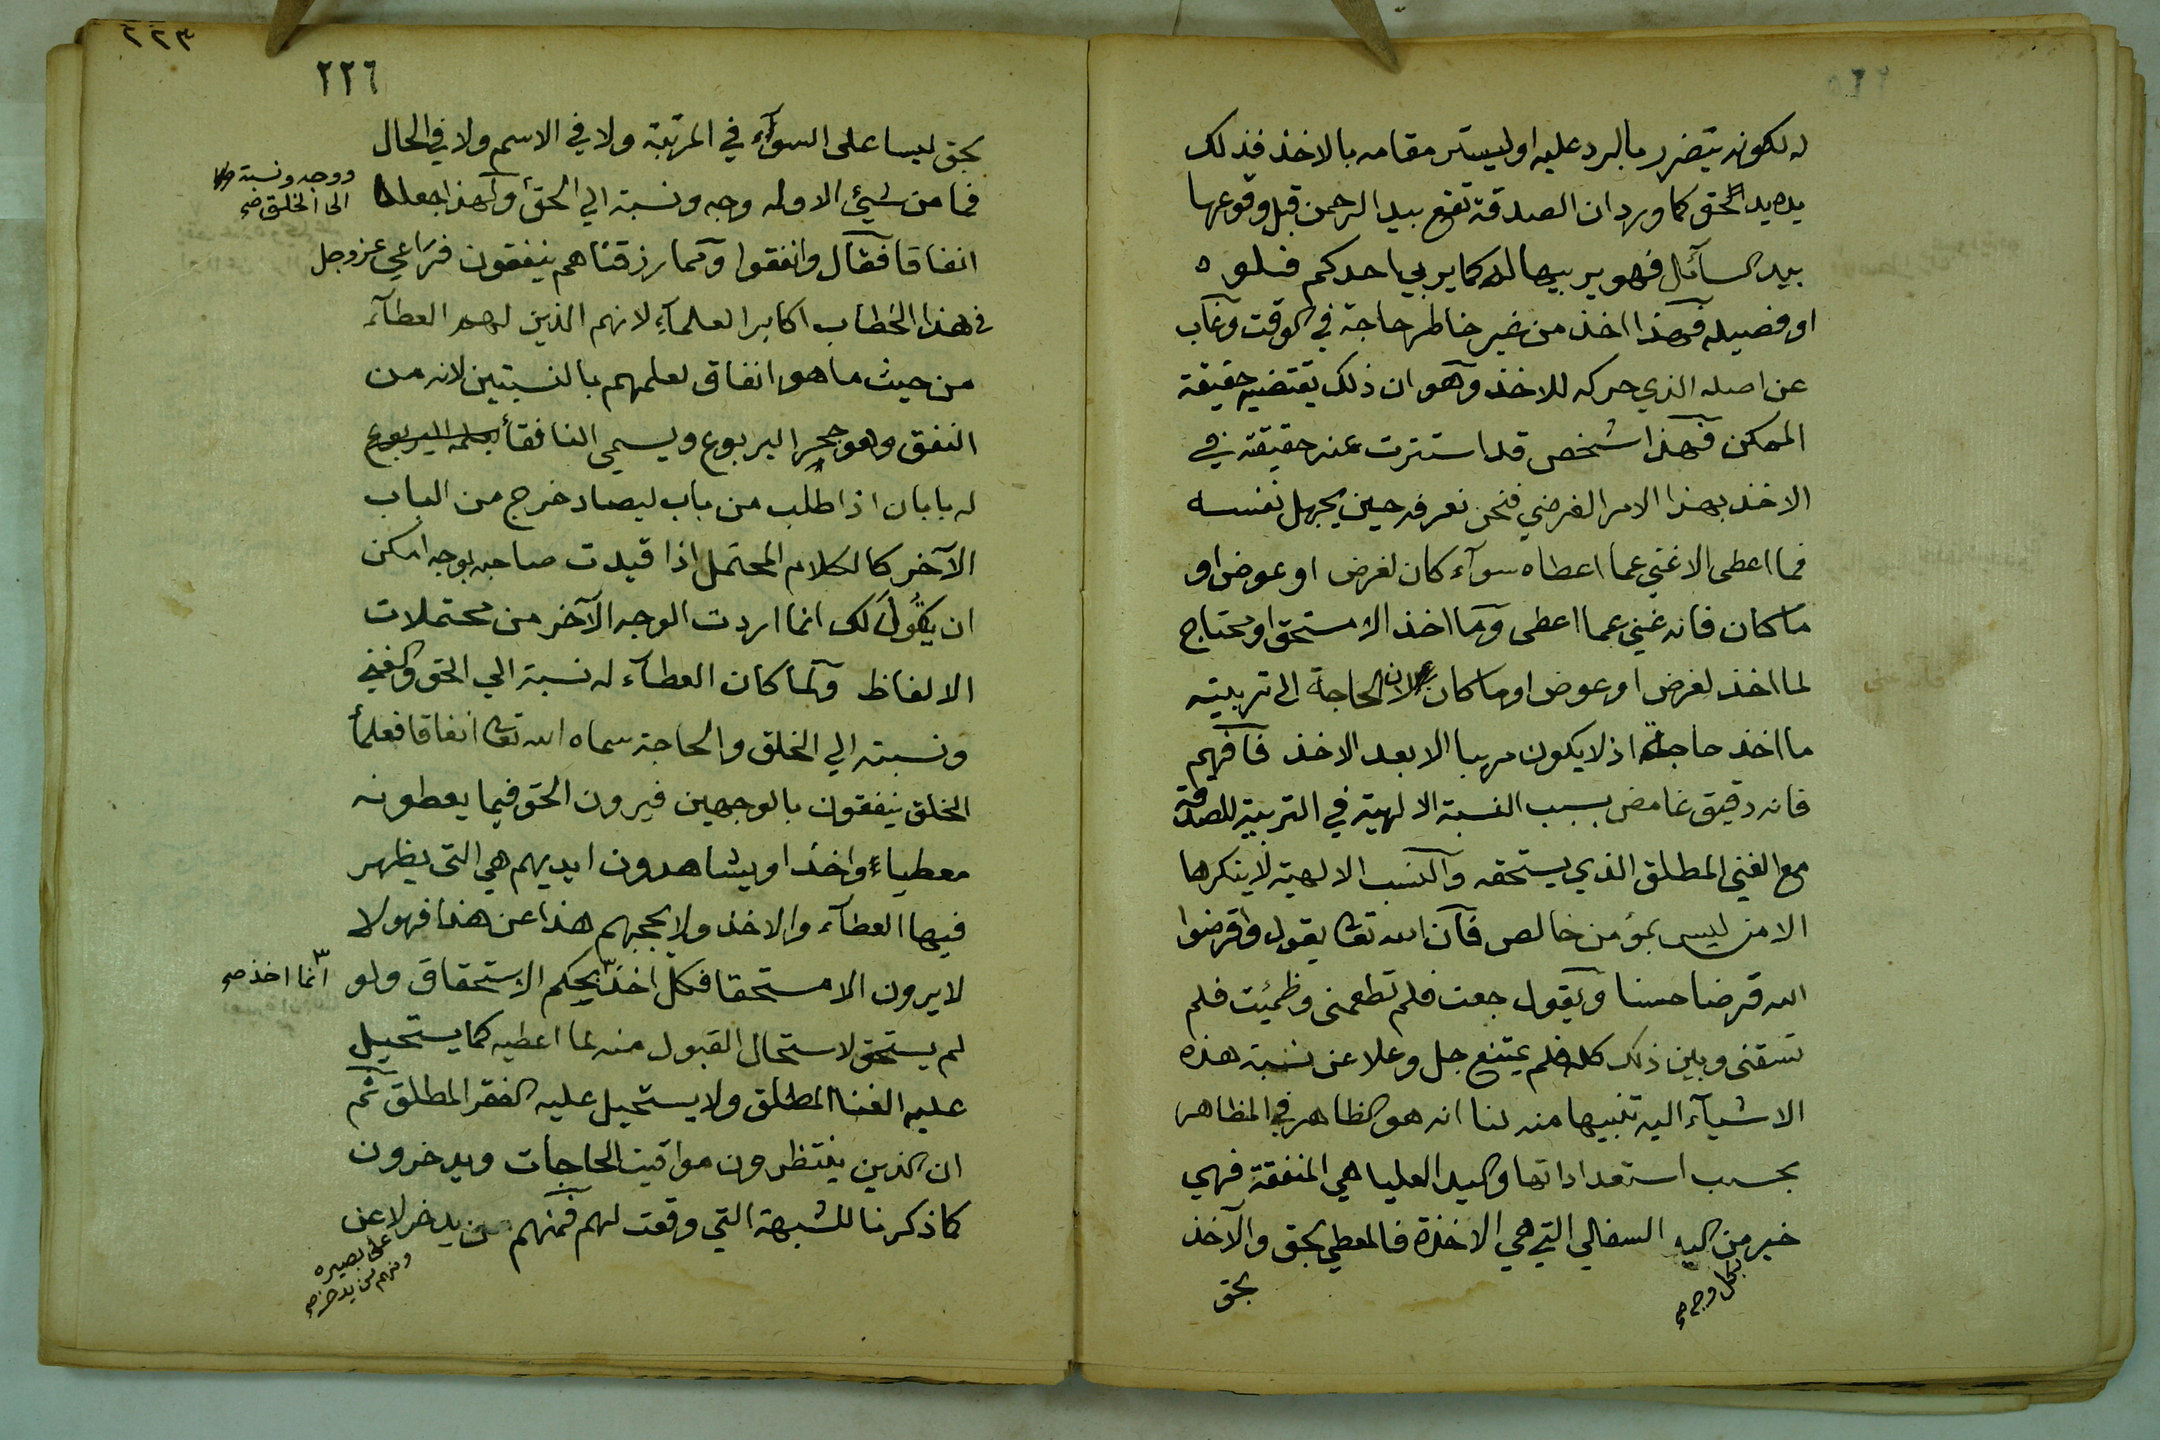 له لكونه يتضرر بالرد عليه او ليستر مقامه بالاخذ فذلك
يده يد الحق كما ورد ان الصدقة تقع بيد الرحمن قبل وقوعها
بيد السآئل فهو يربيها له كما يربي احدكم فلوه
او فصيله فهذا اخذ من غير خاطر حاجة في الوقت وغاب
عن اصله الذي حركه للاخذ وهو ان ذلك يقتضيه حقيقة
الممكن فهذا شخص قد استترت عنه حقيقته في
الاخذ بهذا الامر الفرضي فنحن نعرفه حين يجهل نفسه
فما اعطى الا غني عما اعطاه سوآء كان لغرض او عوض او
ما كان فانه غني عما اعطى وما اخذ الا مستحق او محتاج
لما اخذ لغرض او عوض او ما كان لان الحاجة الى تربيته
ما اخذ حاجة اذ لا يكون مربيا الا بعد الاخذ فافهم
فانه دقيق غامض بسبب النسبة الالهية في التربية للصدقة
مع الغني المطلق الذي يستحقه والنسب الالهية لا ينكرها
الا من ليس بمؤمن خالص فان الله تعا يقول واقرضوا
الله قرضا حسنا ويقول جعت فلم تطعمني وظمئت فلم
تسقني وبين ذلك كله فلم يمتنع جل وعلا عن نسبة هذه
الاشيآء اليه تنبيها منه لنا انه هو الظاهر في المظاهر
بحسب استعداداتها واليد العليا هي المنفقة فهي
خير من اليد السفلي التي هي الاخذة فالمعطي بحق والآخذ
بكل وجه صح
بحق
٢٢٣
٢٢٦
بحق ليسا على السوآء في المرتبة ولا في الاسم ولا في الحال
فما من شيئ الا وله وجه ونسبة الي الحق ولهذا جعله
ووجه ونسبة
الى الخلق صح
انفاقا فقال وانفقوا ومما رزقناهم ينفقون فراعي عز وجل
في هذا الخطاب اكابر العلمآء لانهم الذين لهم العطآء
من حيث ما هو انفاق لعلمهم بالنسبتين لانه من
النفق وهو جحر اليربوع ويسمي النافقأ
له بابان اذا طلب من باب ليصاد خرج من الباب
الآخر كالكلام المحتمل اذا قيدت صاحبه بوجه امكن
ان يقول لك انما اردت الوجه الآخر من محتملات
الالفاظ ولما كان العطآء له نسبة الي الحق والغني
ونسبة الي الخلق والحاجة سماه الله تعا انفاقا فعلمأ
الخلق ينفقون بالوجهين فيرون الحق فيما يعطونه
معطياء واخذا ويشاهدون ايديهم هي التي يظهر
فيها العطآء والاخذ ولا يحجبهم هذا عن هذا فهولا
لا يرون الا مستحقا فكل اخذ بحكم الاستحقاق ولو
انما اخذ صح
لم يستحق لاستحال القبول منه لما اعطيه كما يستحيل
عليه الغنا المطلق ولا يستحيل عليه الفقر المطلق ثم
ان الذين ينتظرون مواقيت الحاجات ويدخرون
كما ذكرنا للشبهة التي وقعت لهم فمنهم من يدخر لا عن
على بصيره
ومنهم من يدخر صح